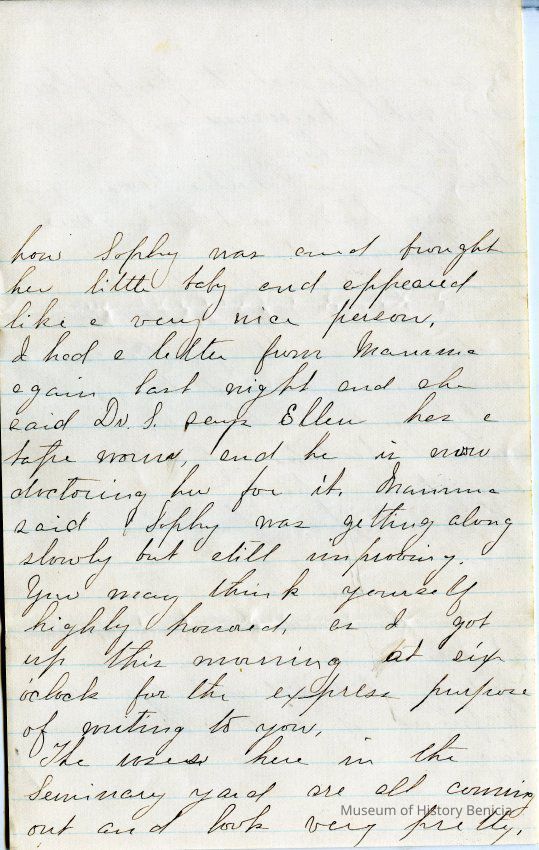 how Sophy was and brought
her little baby and appeared
like a very nice person,
I had a letter from Mamma
again last night and she
said Dr. S. says Ellen has a
tape worm, and he is now
doctoring her for it. Mamma
said Sophy was getting along
slowly but still improving.
You may think yourself
highly honored, as I got
up this morning at six
o'clock for the express purpose
of writing to you,
The roses here in the
Seminary yard are all coming
out and look very pretty.
Museum of History Benicia